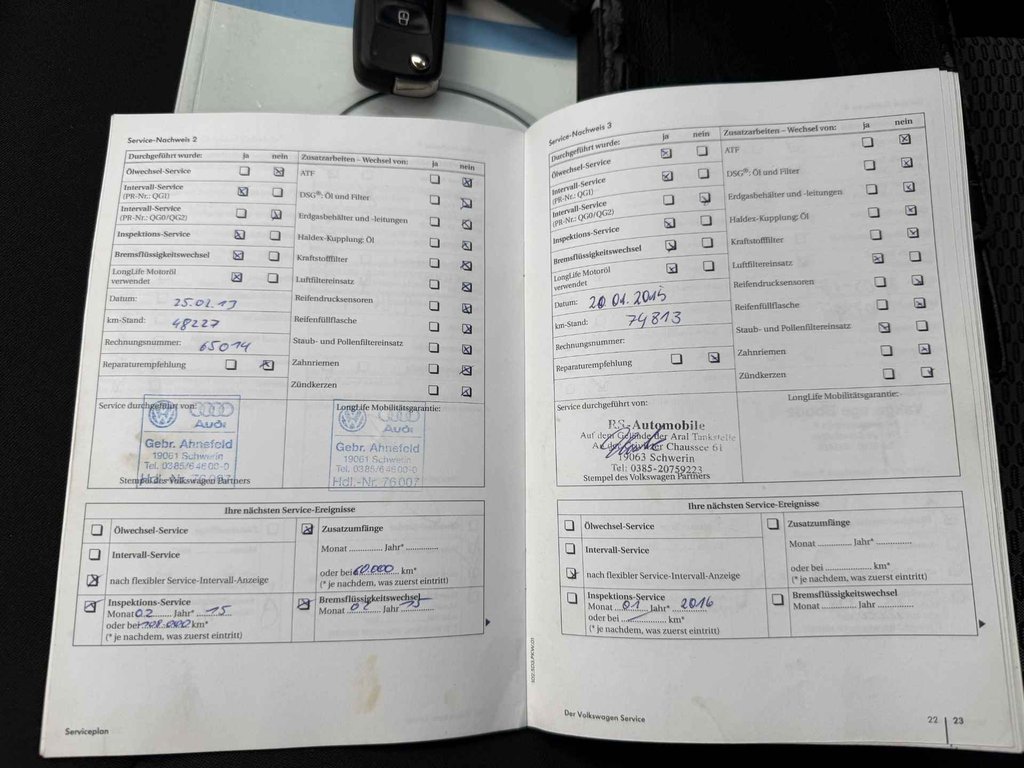 Service-Nachweis 2
Durchgeführt wurde: ja nein
Ölwechsel-Service
Intervall-Service
(PR-Nr.: QG1)
Intervall-Service
(PR-Nr.: QG0/QG2)
Inspektions-Service
Bremsflüssigkeitswechsel
LongLife Motoröl
verwendet
Datum: 25.02.13
km-Stand: 48227
Rechnungsnummer: 65014
Reparaturempfehlung
Zusatzarbeiten – Wechsel von: ja nein
ATF
DSG®: Öl und Filter
Erdgasbehälter und -leitungen
Haldex-Kupplung: Öl
Kraftstofffilter
Luftfiltereinsatz
Reifendrucksensoren
Reifenfüllflasche
Staub- und Pollenfiltereinsatz
Zahnriemen
Zündkerzen
Service durchgeführt von:
Audi
Gebr. Ahnefeld
19061 Schwerin
Tel. 0385/64600-0
Hdl.-Nr. 76007
Stempel des Volkswagen Partners
LongLife Mobilitätsgarantie:
Audi
Gebr. Ahnefeld
19061 Schwerin
Tel. 0385/64600-0
Hdl.-Nr. 76007
Ihre nächsten Service-Ereignisse
Ölwechsel-Service
Intervall-Service
nach flexibler Service-Intervall-Anzeige
Inspektions-Service
Monat 02 Jahr* 15
oder bei km*
(* je nachdem, was zuerst eintritt)
Zusatzumfänge
Monat .............. Jahr* ..............
oder bei 60.000 km*
(* je nachdem, was zuerst eintritt)
Bremsflüssigkeitswechsel
Monat 02 Jahr 15
Serviceplan
Service-Nachweis 3
Durchgeführt wurde: ja nein
Ölwechsel-Service
Intervall-Service
(PR-Nr.: QG1)
Intervall-Service
(PR-Nr.: QG0/QG2)
Inspektions-Service
Bremsflüssigkeitswechsel
LongLife Motoröl
verwendet
Datum: 20.01.2015
km-Stand: 74813
Rechnungsnummer:
Reparaturempfehlung
Zusatzarbeiten – Wechsel von: ja nein
ATF
DSG®: Öl und Filter
Erdgasbehälter und -leitungen
Haldex-Kupplung: Öl
Kraftstofffilter
Luftfiltereinsatz
Reifendrucksensoren
Reifenfüllflasche
Staub- und Pollenfiltereinsatz
Zahnriemen
Zündkerzen
Service durchgeführt von:
RS-Automobile
Auf dem Gelände der Aral Tankstelle
Chaussee 61
19063 Schwerin
Tel: 0385-20759223
Stempel des Volkswagen Partners
LongLife Mobilitätsgarantie:
Ihre nächsten Service-Ereignisse
Ölwechsel-Service
Intervall-Service
nach flexibler Service-Intervall-Anzeige
Inspektions-Service
Monat 01 Jahr* 2016
oder bei km*
(* je nachdem, was zuerst eintritt)
Zusatzumfänge
Monat .............. Jahr* ..............
oder bei .............. km*
(* je nachdem, was zuerst eintritt)
Bremsflüssigkeitswechsel
Monat .............. Jahr ..............
Der Volkswagen Service
22 23